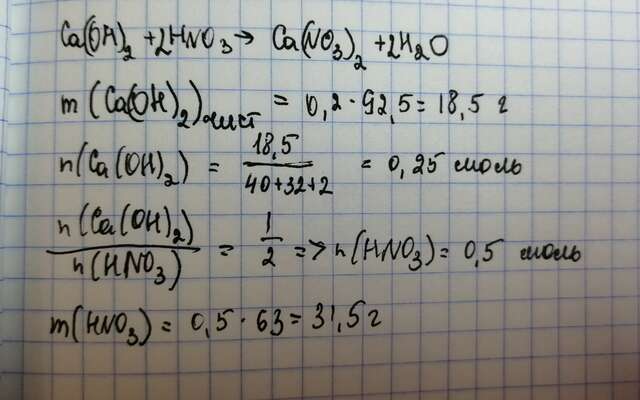 Ca(OH)₂ + 2HNO₃ → Ca(NO₃)₂ + 2H₂O
m(Ca(OH)₂)чист = 0,2 · 92,5 = 18,5 г
n(Ca(OH)₂) = 18,5 / 40+32+2 = 0,25 моль
n(Ca(OH)₂) / n(HNO₃) = 1/2 => n(HNO₃) = 0,5 моль
m(HNO₃) = 0,5 · 63 = 31,5 г